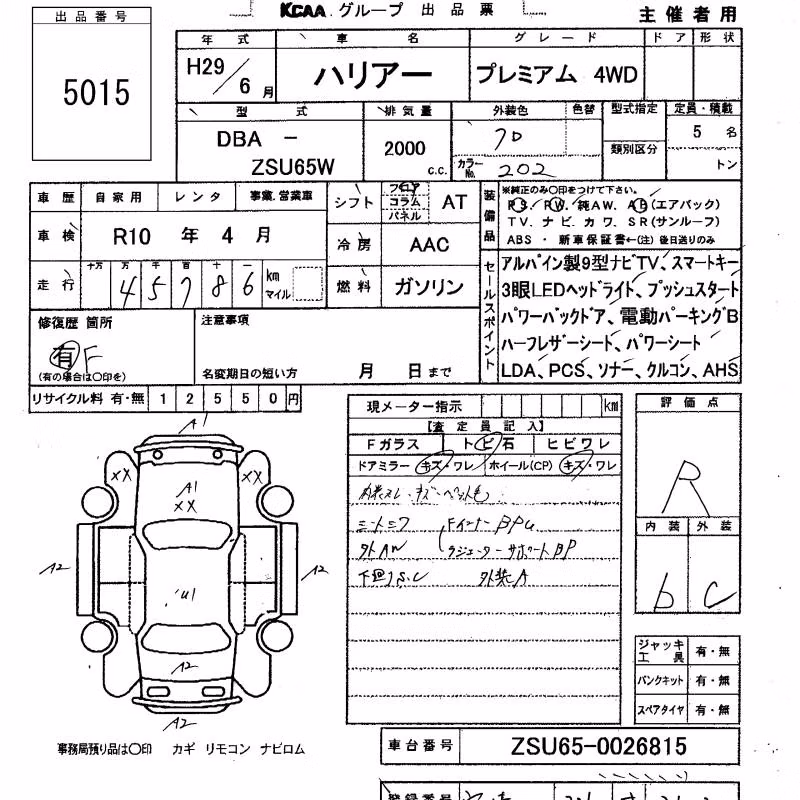 KCAA グループ 出品票
主催者用
出品番号
5015
年式 車名 グレード ドア 形状
H29/6月 ハリアー プレミアム 4WD
型式 排気量 外装色 色替 型式指定 定員・積載
DBA - 2000 クロ 5 名
類別区分
ZSU65W c.c. カラーNo. 202 トン
車歴 自家用 レンタ 事業.営業車
シフト フロア コラム パネル AT
装備品
※純正のみ〇印をつけて下さい。
PS/PW/純AW. AB(エアバック)
TV. ナビ. カワ. SR(サンルーフ)
ABS ・ 新車保証書←(注) 後日送りのみ
車検 R10 年 4 月
冷房 AAC
走行 十万 万 千 百 十 一 km マイル
45786
燃料 ガソリン
セールスポイント
アルパイン製9型ナビTV、スマートキー
3眼LEDヘッドライト、プッシュスタート
パワーバックドア、電動パーキングB
ハーフレザーシート、パワーシート
LDA、PCS、ソナー、クルコン、AHS
修復歴 箇所
有 F
(有の場合は〇印を)
注意事項
名変期日の短い方 月 日まで
リサイクル料 有・無 12550円
現メーター指示 km
【査定員記入】
Fガラス トビ石 ヒビワレ
ドアミラー キズ・ワレ ホイール(CP) キズ・ワレ
内装スレ・キズ・ペット毛
ミートニフ Fインナー BPu
外AW ラジエーターサポートBP
下回りS.C 外装A
評価点
R
内装 外装
b c
ジャッキ工具 有・無
パンクキット 有・無
スペアタイヤ 有・無
A1
XX
XX
A1
XX
A2
A2
U1
A2
A2
事務局預り品は〇印 カギ リモコン ナビロム
車台番号 ZSU65-0026815
登録番号